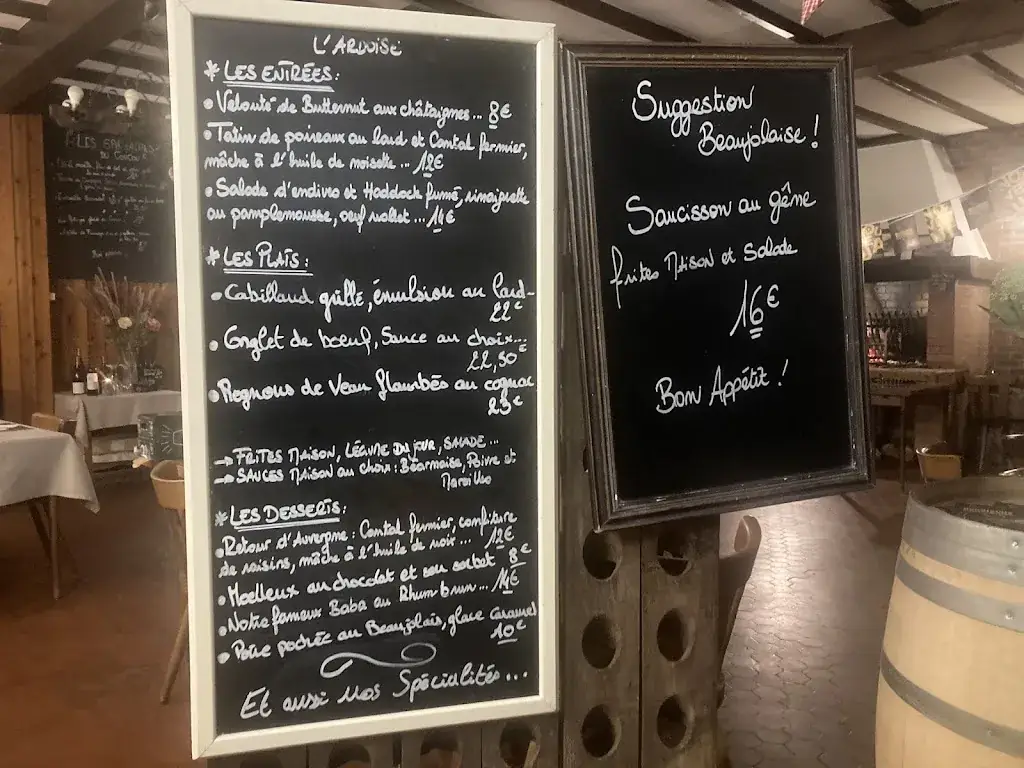 L'ARDOISE
* LES ENTRÉES:
• Velouté de Butternut aux châtaignes... 8€
• Tatin de poireaux au lard et Cantal fermier,
mâche à l'huile de noisette... 12€
• Salade d'endive et Haddock fumé, vinaigrette
au pamplemousse, oeuf mollet... 14€
* LES PLATS:
• Cabillaud grillé, émulsion au lard-
22€
• Onglet de boeuf, Sauce au choix...
22,50€
• Rognons de Veau flambés au cognac
23€
→ FRITES MAISON, LÉGUME DU JOUR, SALADE...
→ SAUCES MAISON au choix: Béarnaise, Poivre et
Morilles
* LES DESSERTS:
• Retour d'Auvergne: Cantal fermier, confiture
de raisins, mâche à l'huile de noix... 12€
• Moelleux au chocolat et son sorbet 8€
• Notre fameux Baba au Rhum brun... 14€
• Poire pochée au Beaujolais, glace Caramel
10€
Et aussi Nos Spécialités...
Suggestion
Beaujolaise!
Saucisson au gêne
frites Maison et Salade
16€
Bon Appétit!